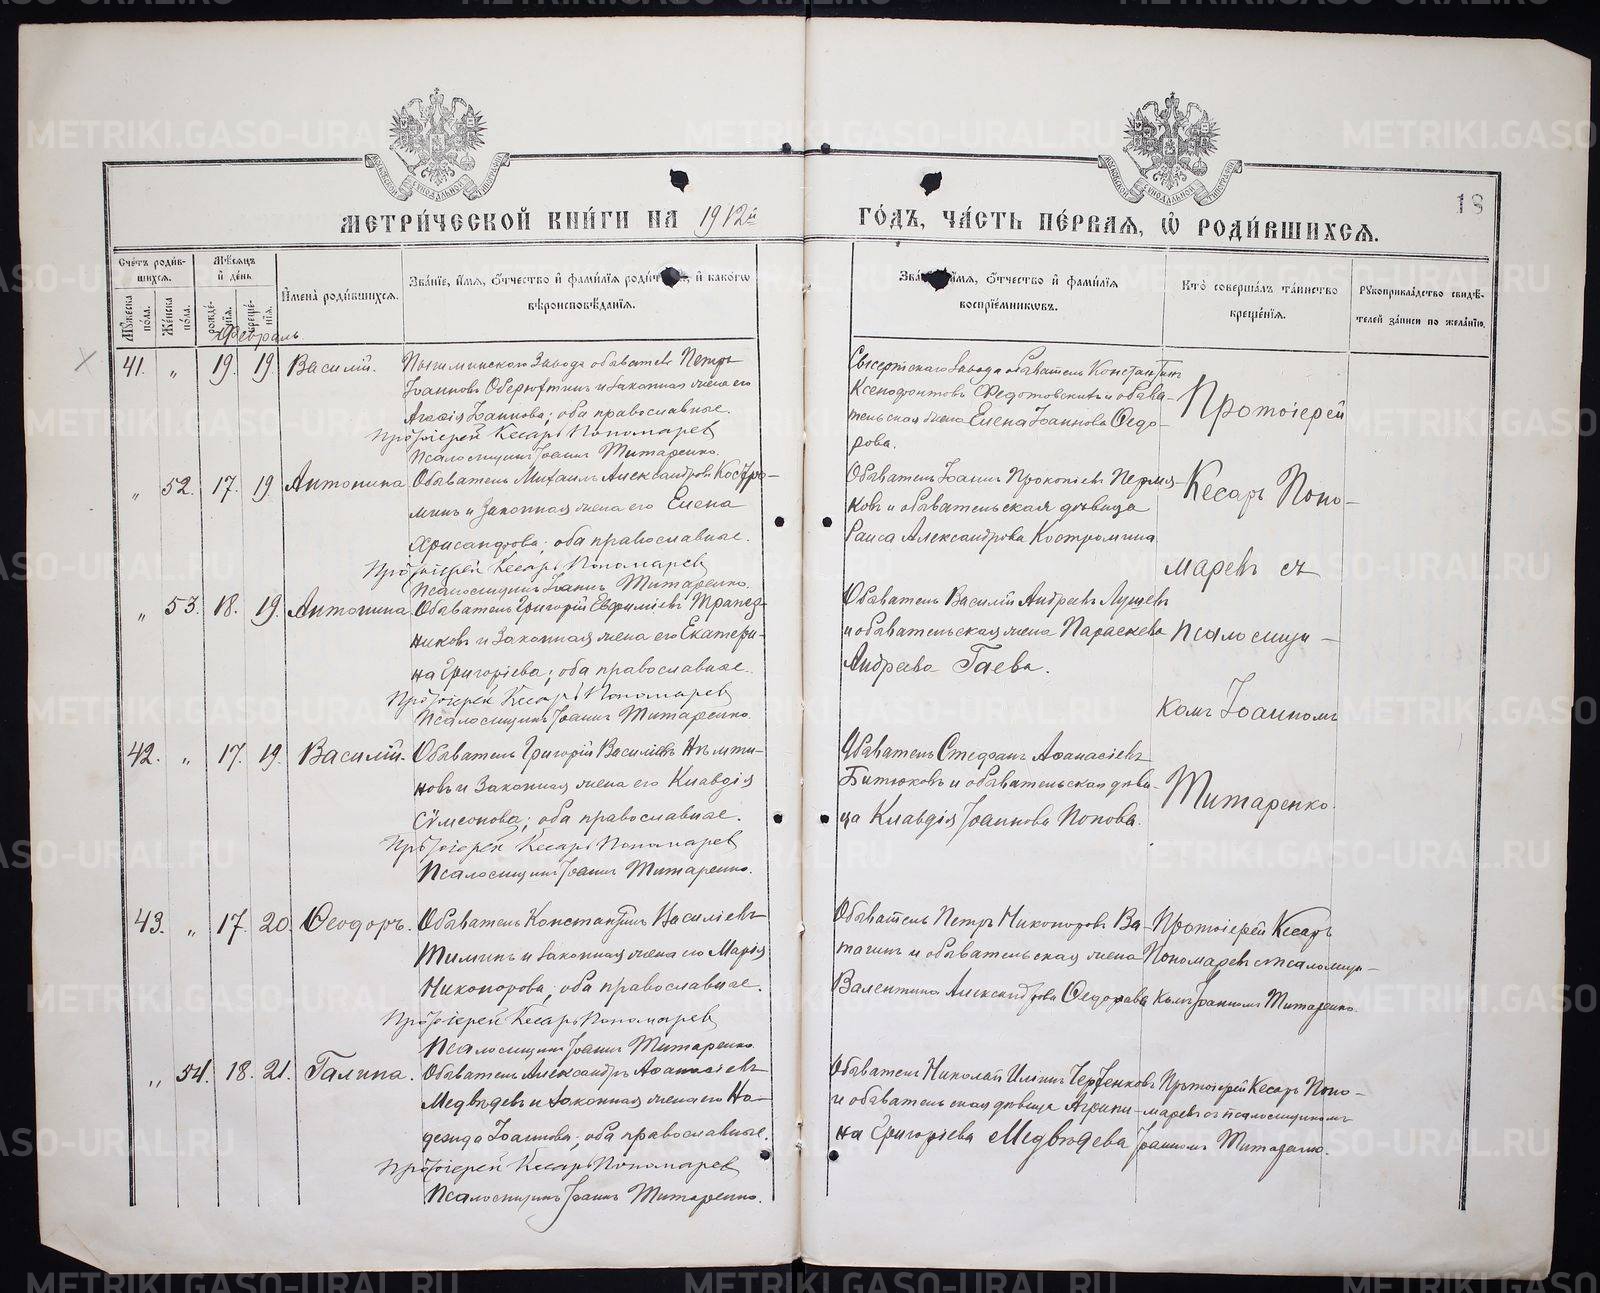 МЕТРИ́ЧЕСКОЙ КНИ́ГИ НА 1912й
ГО́ДЪ, ЧА́СТЬ ПЕ́РВАЯ, Ѡ҆ РОДИ́ВШИХСЯ.
18
Сче́тъ роди́в-
шихся.
Мꙋ́жеска по́ла.
Же́нска по́ла.
Мѣ́сяцъ
и҆ де́нь
рожде́-
нїя.
креще́-
нїя.
И҆мена̀ роди́вшихся.
Зва́нїе, и҆́мя, ѻ҆́тчество и҆ фами́лїя роди́телей, и҆ како́гѡ
вѣроисповѣ́данїя.
Зва́нїе, и҆́мя, ѻ҆́тчество и҆ фами́лїя
воспрїе́мниковъ.
Кто̀ соверша́лъ та́инство
креще́нїя.
Рꙋкоприкла́дство свидѣ́-
телей за́писи по жела́нїю.
Февраль
41. „ 19. 19. Василій.
Пышминскаго Завода обыватель Петръ
Іоанновъ Оберюхтинъ и законная жена его
Агаѳія Іоаннова; оба православные.
Протоіерей Кесарь Пономаревъ
Псаломщикъ Іоаннъ Титаренко.
Сысертскаго завода обыватель Константинъ
Ксенофонтовъ Федотовскихъ и обыва-
тельская жена Елена Іоаннова Ѳедо-
рова.
Протоіерей
„ 52. 17. 19. Антонина
Обыватель Михаилъ Александровъ Костро-
минъ и Законная жена его Елена
Хрисанфова; оба православные.
Протоіерей Кесарь Пономаревъ
Псаломщикъ Іоаннъ Титаренко.
Обыватель Іоаннъ Прокопіевъ Пермя-
ковъ и обывательская дѣвица
Раиса Александрова Костромина
Кесарь Поно-
маревъ съ
„ 53. 18. 19. Антонина
Обыватель Григорій Евфиміевъ Трапез-
никовъ и Законная жена его Екатери-
на Григоріева; оба православные.
Протоіерей Кесарь Пономаревъ
Псаломщикъ Іоаннъ Титаренко.
Обыватель Василій Андреевъ Лущевъ
и обывательская жена Параскева
Андреева Гаева.
псаломщи-
комъ Іоанномъ
42. „ 17. 19. Василій.
Обыватель Григорій Василіевъ
новъ и Законная жена его Клавдія
Сѵмеонова; оба православные.
Протоіерей Кесарь Пономаревъ
Псаломщикъ Іоаннъ Титаренко.
Обыватель Стефанъ Аѳанасіевъ
Битюковъ и обывательская дѣви-
ца Клавдія Іоаннова Попова.
Титаренко.
43. „ 17. 20. Ѳеодоръ.
Обыватель Константинъ Василіевъ
Тиминъ и законная жена его Марія
Никонорова; оба православные.
Протоіерей Кесарь Пономаревъ
Псаломщикъ Іоаннъ Титаренко.
Обыватель Петръ Никоноровъ Ва-
тагинъ и обывательская жена
Валентина Александрова Ѳедорова
Протоіерей Кесарь
Пономаревъ съ псаломщи-
комъ Іоанномъ Титаренко.
„ 54. 18. 21. Галина.
Обыватель Александръ Аѳанасіевъ
Медвѣдевъ и законная жена его На-
дежда Іоаннова; оба православные.
Протоіерей Кесарь Пономаревъ
Псаломщикъ Іоаннъ Титаренко.
Обыватель Николай Ильинъ Чертенковъ
и обывательская дѣвица Агрипи-
на Григоріева Медвѣдева
Протоіерей Кесарь Поно-
маревъ съ псаломщикомъ
Іоанномъ Титаренко.